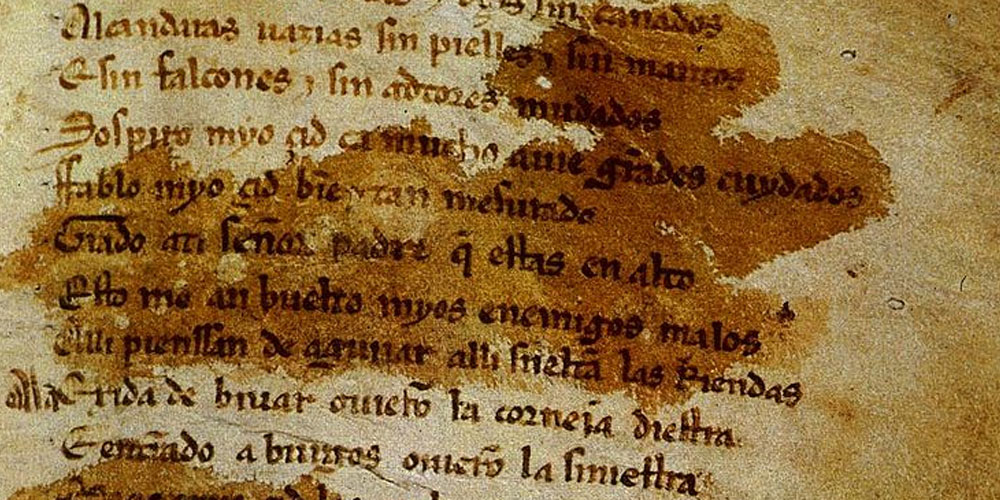 sin cannados
Alcandaras uazias sin pielles ⁊ sin mantos
E sin falcones ⁊ sin adtores mudados
Sospiro myo çid ca mucho auie gr̃ades cuydados
ffablo myo çid bie ⁊ tan mesurado
Grado ati señor padre q̃ estas en alto
Esto me an buelto myos enemigos malos
Alli pienssan de aguiiar alli sueltã las Riendas
Ala Exida de biuar ouierõ la corneia diestra
E entrãdo a burgos ouierõ la siniestra